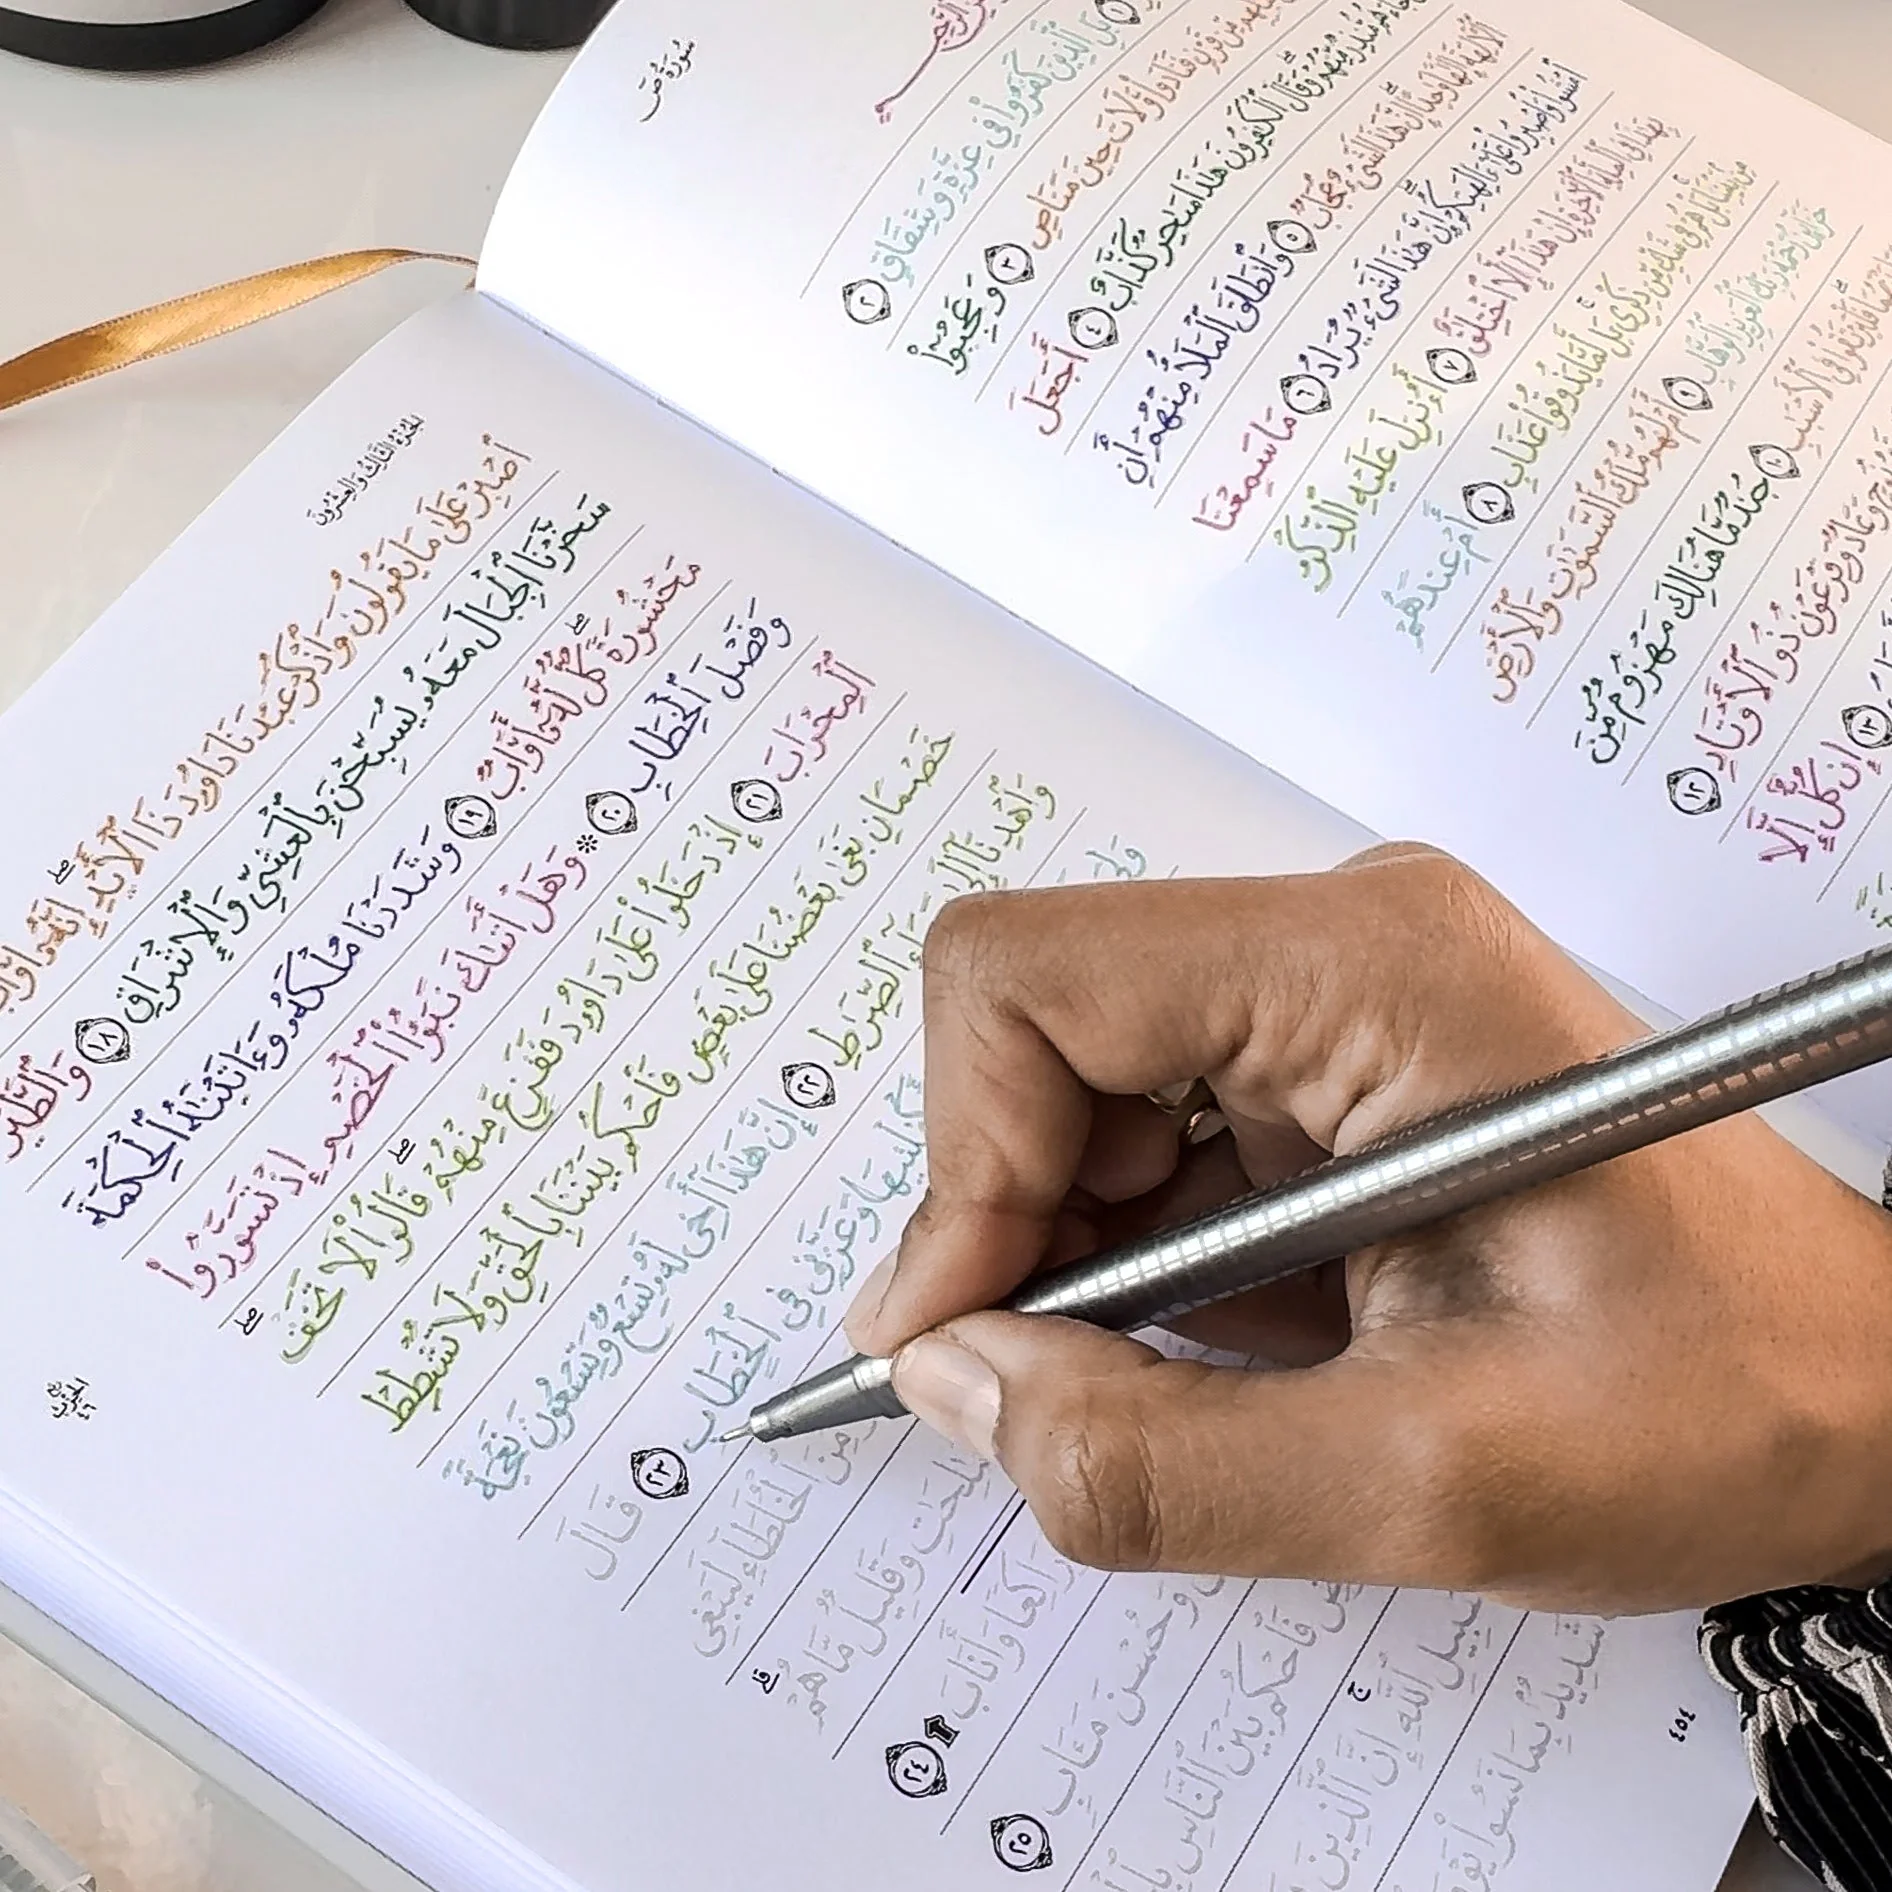 سُورَةُ صٓ
بَلِ ٱلَّذِينَ كَفَرُواْ فِي عِزَّةٖ وَشِقَاقٖ ٢
مِّن قَرۡنٖ فَنَادَواْ وَّلَاتَ حِينَ مَنَاصٖ ٣ وَعَجِبُوٓاْ
جَآءَهُم مُّنذِرٞ مِّنۡهُمۡۖ وَقَالَ ٱلۡكَٰفِرُونَ هَٰذَا سَٰحِرٞ كَذَّابٌ ٤ أَجَعَلَ
ٱلۡأٓلِهَةَ إِلَٰهٗا وَٰحِدًاۖ إِنَّ هَٰذَا لَشَيۡءٌ عُجَابٞ ٥ وَٱنطَلَقَ ٱلۡمَلَأُ مِنۡهُمۡ أَنِ
ٱمۡشُواْ وَٱصۡبِرُواْ عَلَىٰٓ ءَالِهَتِكُمۡۖ إِنَّ هَٰذَا لَشَيۡءٞ يُرَادُ ٦ مَا سَمِعۡنَا
بِهَٰذَا فِي ٱلۡمِلَّةِ ٱلۡأٓخِرَةِ إِنۡ هَٰذَآ إِلَّا ٱخۡتِلَٰقٌ ٧ أَءُنزِلَ عَلَيۡهِ ٱلذِّكۡرُ
مِنۢ بَيۡنِنَاۚ بَلۡ هُمۡ فِي شَكّٖ مِّن ذِكۡرِيۚ بَل لَّمَّا يَذُوقُواْ عَذَابِ ٨ أَمۡ عِندَهُمۡ
خَزَآئِنُ رَحۡمَةِ رَبِّكَ ٱلۡعَزِيزِ ٱلۡوَهَّابِ ٩ أَمۡ لَهُم مُّلۡكُ ٱلسَّمَٰوَٰتِ وَٱلۡأَرۡضِ
فَلۡيَرۡتَقُواْ فِي ٱلۡأَسۡبَٰبِ ١٠ جُندٞ مَّا هُنَالِكَ مَهۡزُومٞ مِّنَ
وَعَادٞ وَفِرۡعَوۡنُ ذُو ٱلۡأَوۡتَادِ ١٢
١٣ إِن كُلٌّ إِلَّا
ٱلۡجُزۡءُ ٱلثَّالِثُ وَٱلۡعِشۡرُونَ
ٱصۡبِرۡ عَلَىٰ مَا يَقُولُونَ وَٱذۡكُرۡ عَبۡدَنَا دَاوُۥدَ ذَا ٱلۡأَيۡدِۖ إِنَّهُۥٓ أَوَّابٌ
سَخَّرۡنَا ٱلۡجِبَالَ مَعَهُۥ يُسَبِّحۡنَ بِٱلۡعَشِيِّ وَٱلۡإِشۡرَاقِ ١٨ وَٱلطَّيۡرَ
مَحۡشُورَةٗۖ كُلّٞ لَّهُۥٓ أَوَّابٞ ١٩ وَشَدَدۡنَا مُلۡكَهُۥ وَءَاتَيۡنَٰهُ ٱلۡحِكۡمَةَ
وَفَصۡلَ ٱلۡخِطَابِ ٢٠ ۞ وَهَلۡ أَتَىٰكَ نَبَؤُاْ ٱلۡخَصۡمِ إِذۡ تَسَوَّرُواْ
ٱلۡمِحۡرَابَ ٢١ إِذۡ دَخَلُواْ عَلَىٰ دَاوُۥدَ فَفَزِعَ مِنۡهُمۡۖ قَالُواْ لَا تَخَفۡۖ
خَصۡمَانِ بَغَىٰ بَعۡضُنَا عَلَىٰ بَعۡضٖ فَٱحۡكُم بَيۡنَنَا بِٱلۡحَقِّ وَلَا تُشۡطِطۡ
وَٱهۡدِنَآ إِلَىٰ سَوَآءِ ٱلصِّرَٰطِ ٢٢ إِنَّ هَٰذَآ أَخِي لَهُۥ تِسۡعٞ وَتِسۡعُونَ نَعۡجَةٗ
وَلِيَ أَكۡفِلۡنِيهَا وَعَزَّنِي فِي ٱلۡخِطَابِ ٢٣ قَالَ
مِّنَ ٱلۡخُلَطَآءِ لَيَبۡغِي
ٱلصَّٰلِحَٰتِ وَقَلِيلٞ مَّا هُمۡۗ
رَاكِعٗا وَأَنَابَ ۩ ٢٤
وَحُسۡنَ مَـَٔابٖ ٢٥
فَٱحۡكُم بَيۡنَ ٱلنَّاسِ بِٱلۡ
سَبِيلِ ٱللَّهِۚ إِنَّ ٱلَّذِينَ
شَدِيدُۢ بِمَا نَسُواْ يَوۡمَ
ٱلۡحِزۡب ٤٦
٤٥٤